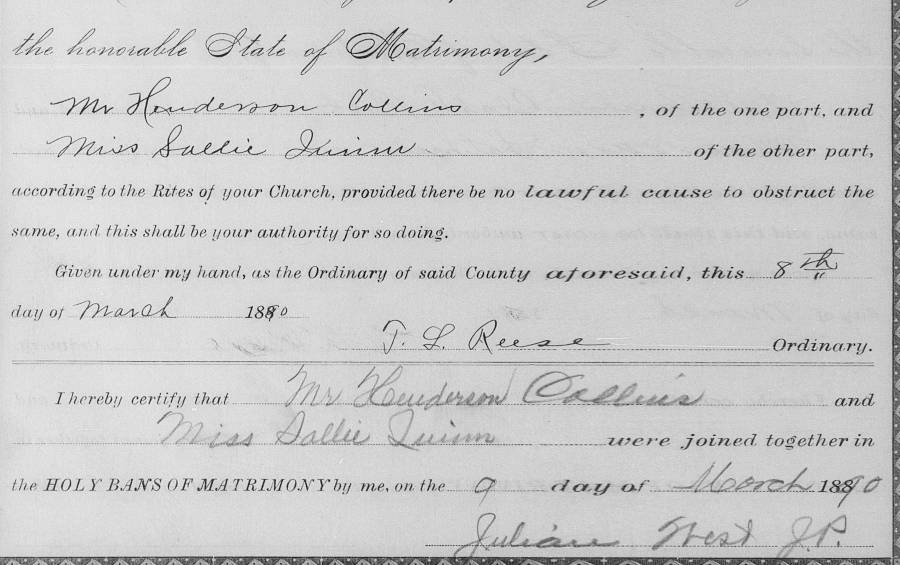 the honorable State of Matrimony,
Mr Henderson Collins, of the one part, and
Miss Sallie Quinn of the other part,
according to the Rites of your Church, provided there be no lawful cause to obstruct the
same, and this shall be your authority for so doing.
Given under my hand, as the Ordinary of said County aforesaid, this 8th
day of March 1890
T. L. Reese Ordinary.
I hereby certify that Mr Henderson Collins and
Miss Sallie Quinn were joined together in
the HOLY BANS OF MATRIMONY by me, on the 9 day of March 1890
Julian West J.P.